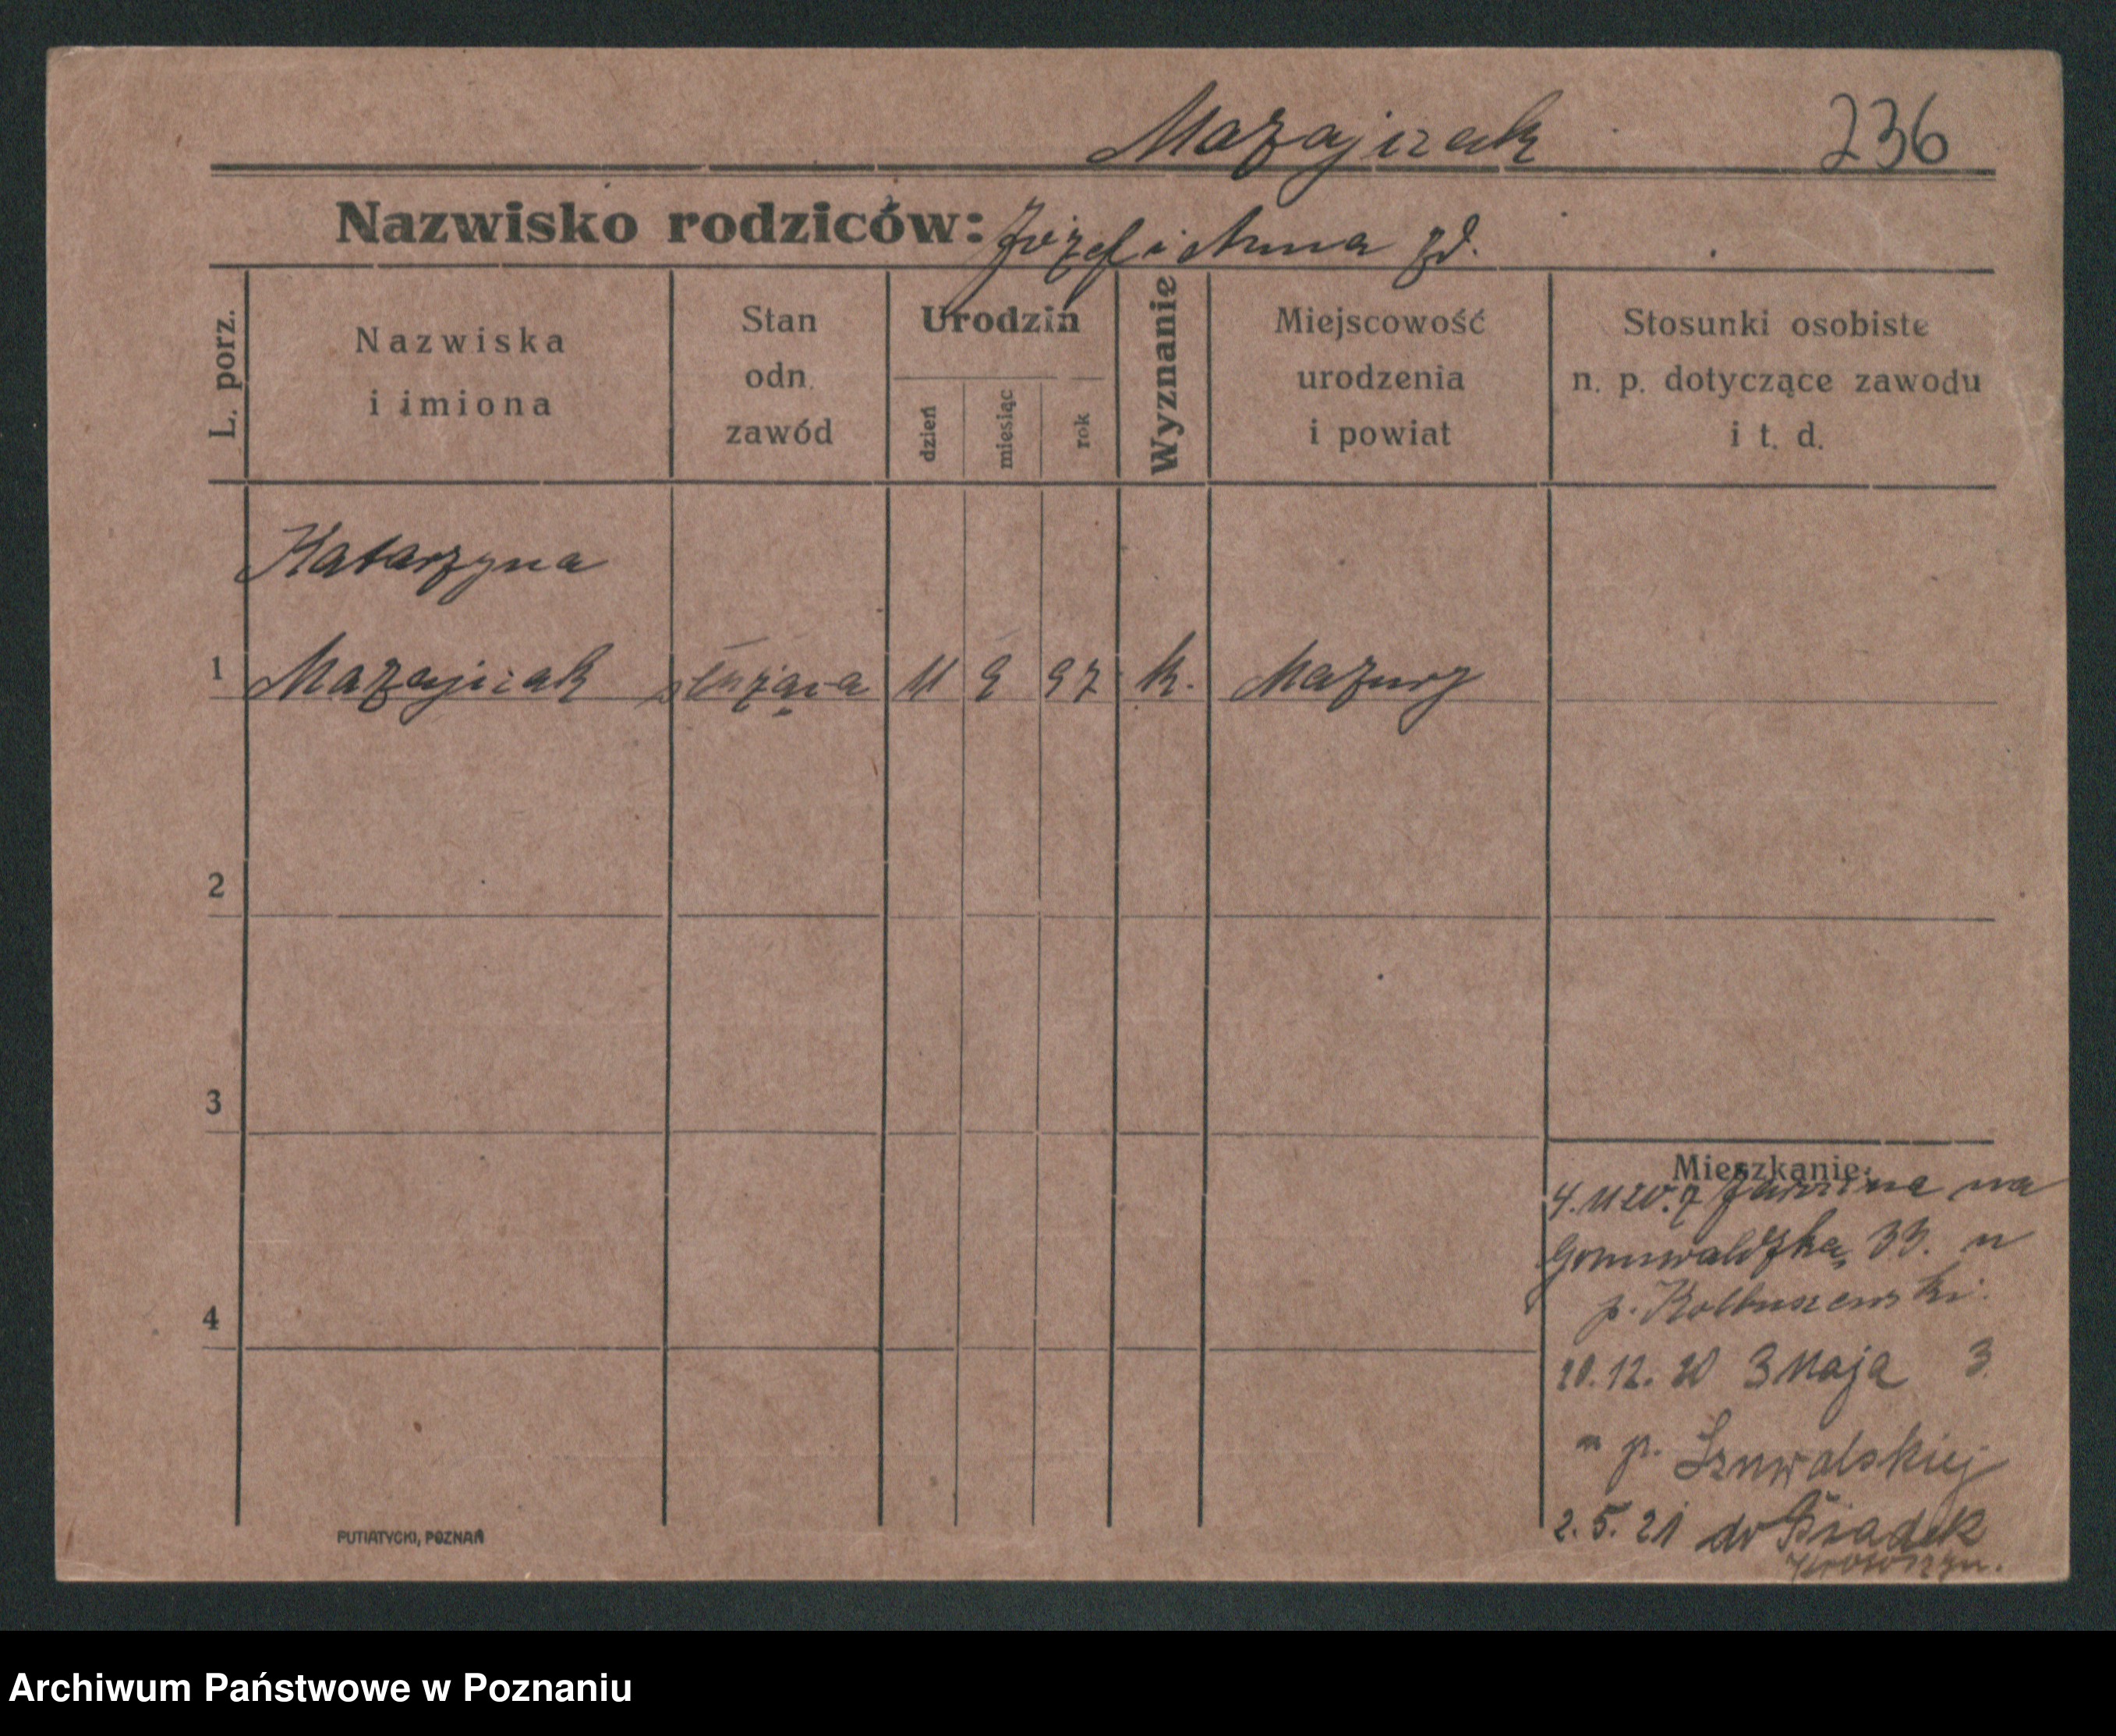 Mazajczak 236
Nazwisko rodziców: Józef i Anna zd.
L. porz.
Nazwiska
i imiona
Stan
odn.
zawód
Urodzin
dzień
miesiąc
rok
Wyznanie
Miejscowość
urodzenia
i powiat
Stosunki osobiste
n. p. dotyczące zawodu
i t. d.
Katarzyna
1 Mazajczak służąca 11 9 97 k. Mazury
2
3
4
Mieszkanie:
4. 11 20. z na
Grunwaldzka 33. u
p. Kolbuszewski.
20.12.20 3 Maja 3.
u p. Szuwalskiej
2.5.21 do Biadek
Krotoszyn.
PUTIATYCKI, POZNAŃ
Archiwum Państwowe w Poznaniu